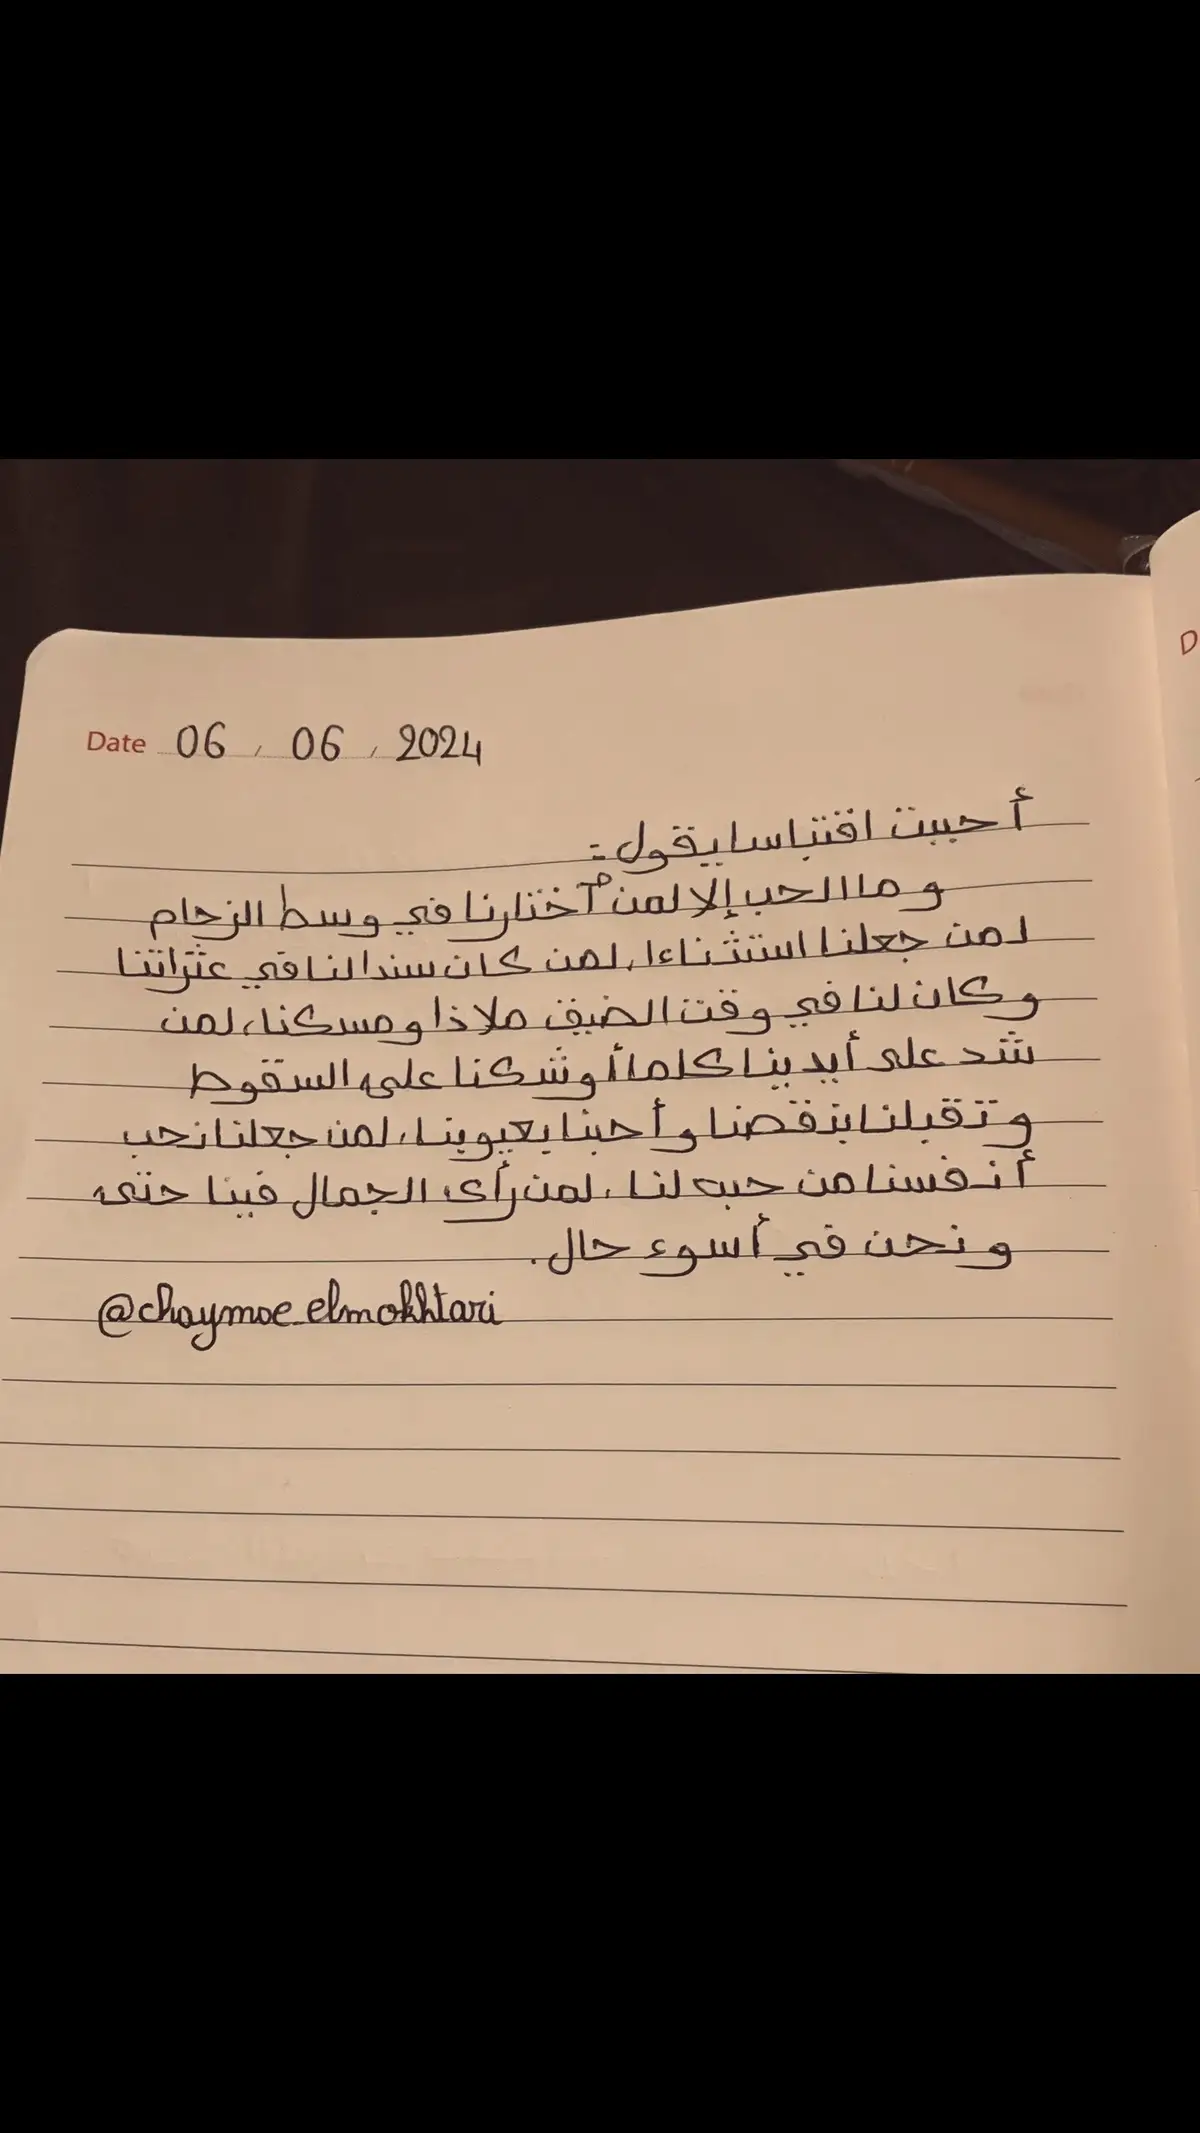 Date 06 / 06 / 2024
أحببت اقتباسا يقول :
وما الحب إلا لمن ٱختارنا في وسط الزحام
لمن جعلنا استثناءا، لمن كان سندا لنا في عثراتنا
وكان لنا في وقت الضيق ملاذا ومسكنا، لمن
شد على أيدينا كلما أوشكنا على السقوط
وتقبلنا بنقصنا وأحبنا بعيوبنا، لمن جعلنا نحب
أنفسنا من حبه لنا، لمن رأى الجمال فينا حتى
ونحن في أسوء حال.
@chaymae_elmokhtari
D